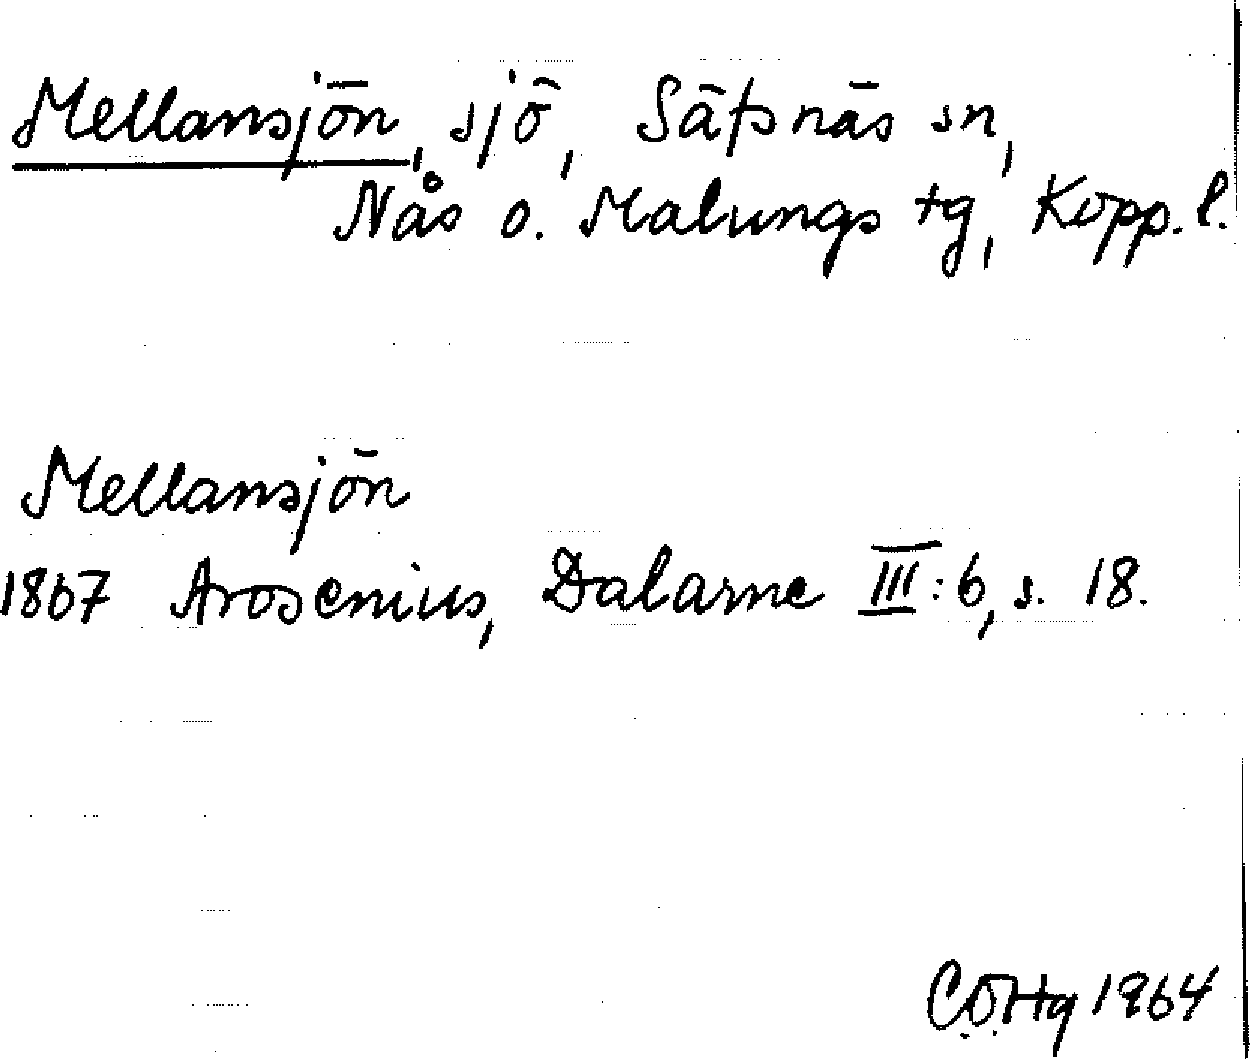 Mellansjön, sjö, Säfsnäs sn,
Nås o. Malungs tg, Kopp. l.
Mellansjön
1867 Arosenius, Dalarne III:6, s. 18.
1964